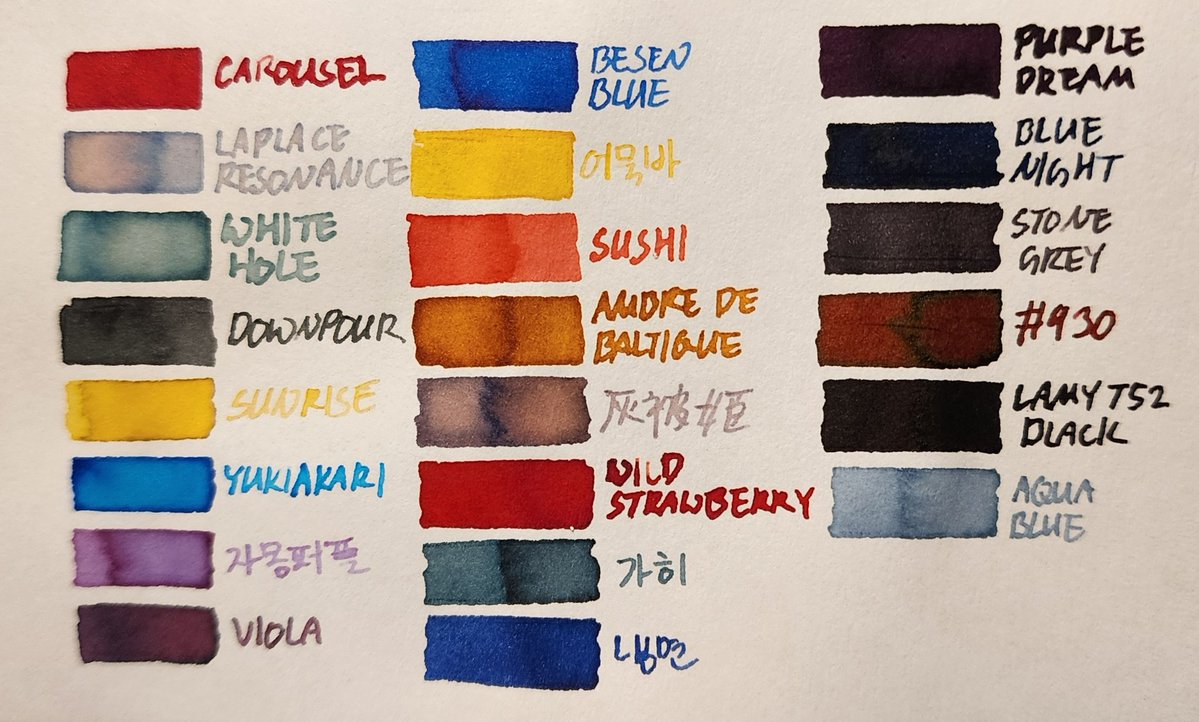 CAROUSEL
LAPLACE
RESONANCE
WHITE
HOLE
DOWNPOUR
SUNRISE
YUKIAKARI
자몽퍼플
VIOLA
BESEN
BLUE
SUSHI
AMBRE DE
BALTIQUE
灰被姫
WILD
STRAWBERRY
가히
PURPLE
DREAM
BLUE
NIGHT
STONE
GREY
#930
LAMY T52
BLACK
AQUA
BLUE